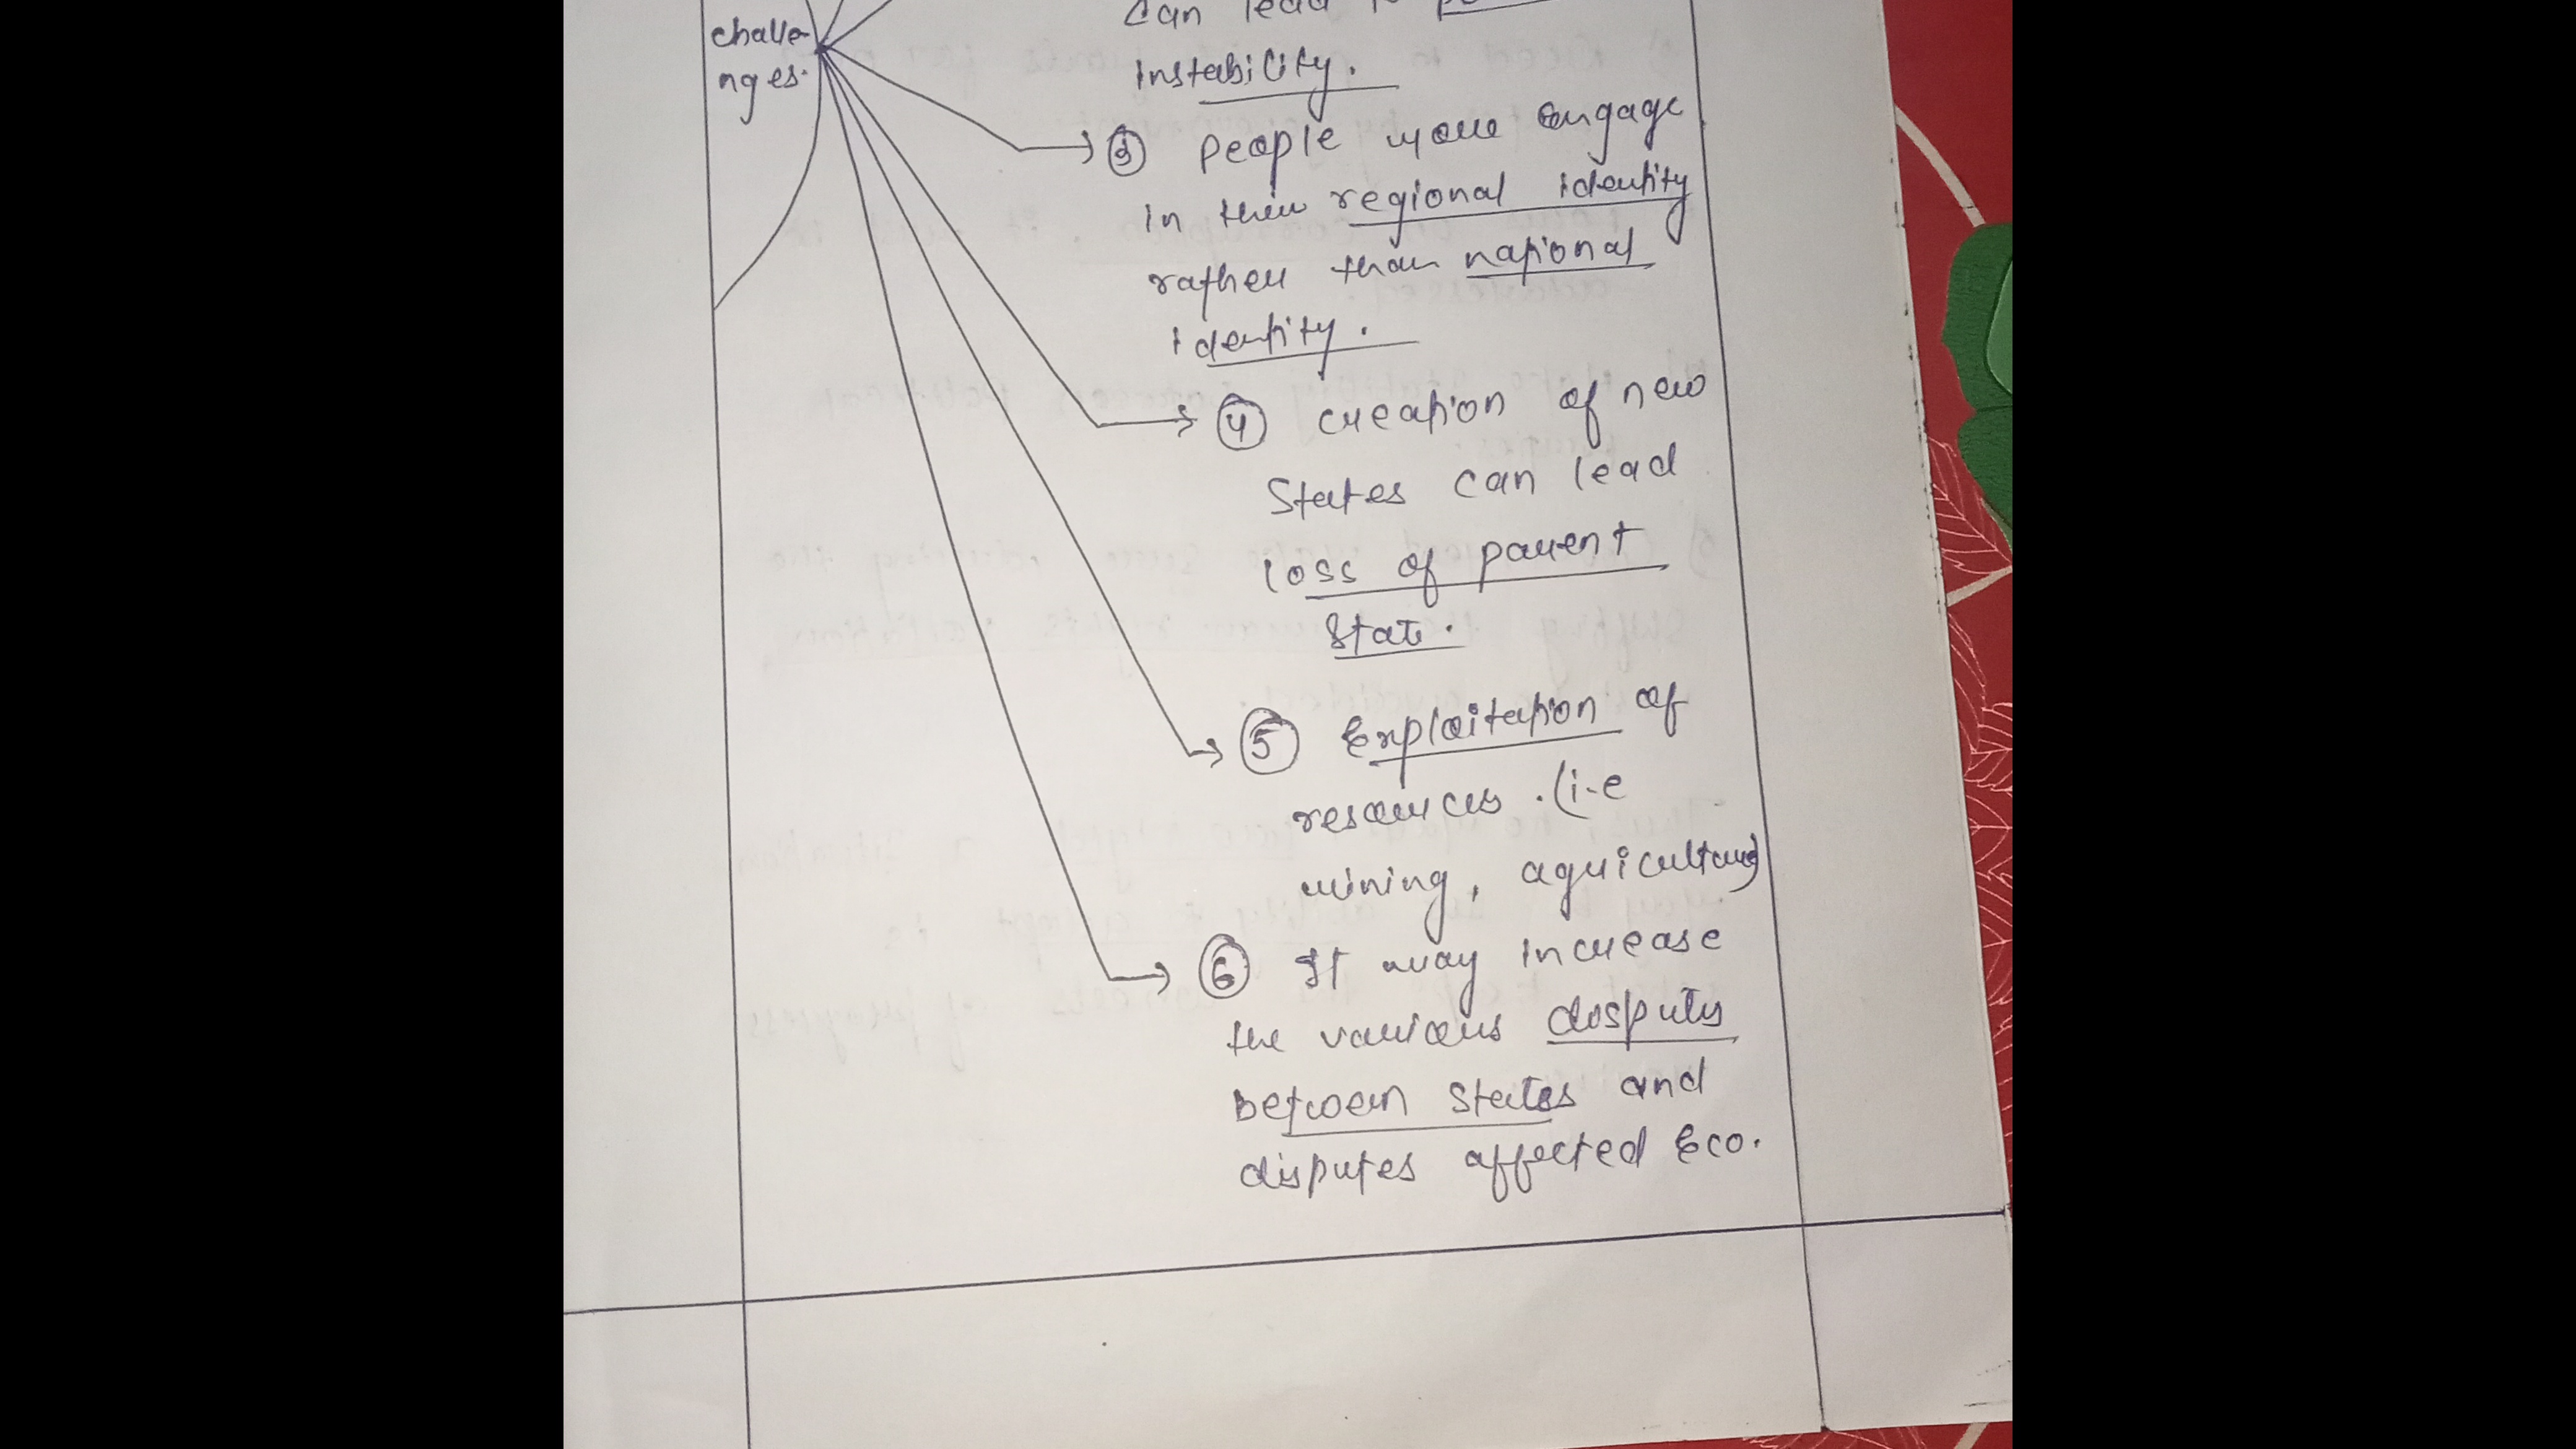 challe-
nges.
can lead to
instability.
③ people more engage
in their regional identity
rather than national
identity.
④ creation of new
States can lead
loss of parent
state.
⑤ Exploitation of
resources. (i-e
mining, agriculture)
⑥ It may increase
the various dosputes
between states and
disputes affected Eco.